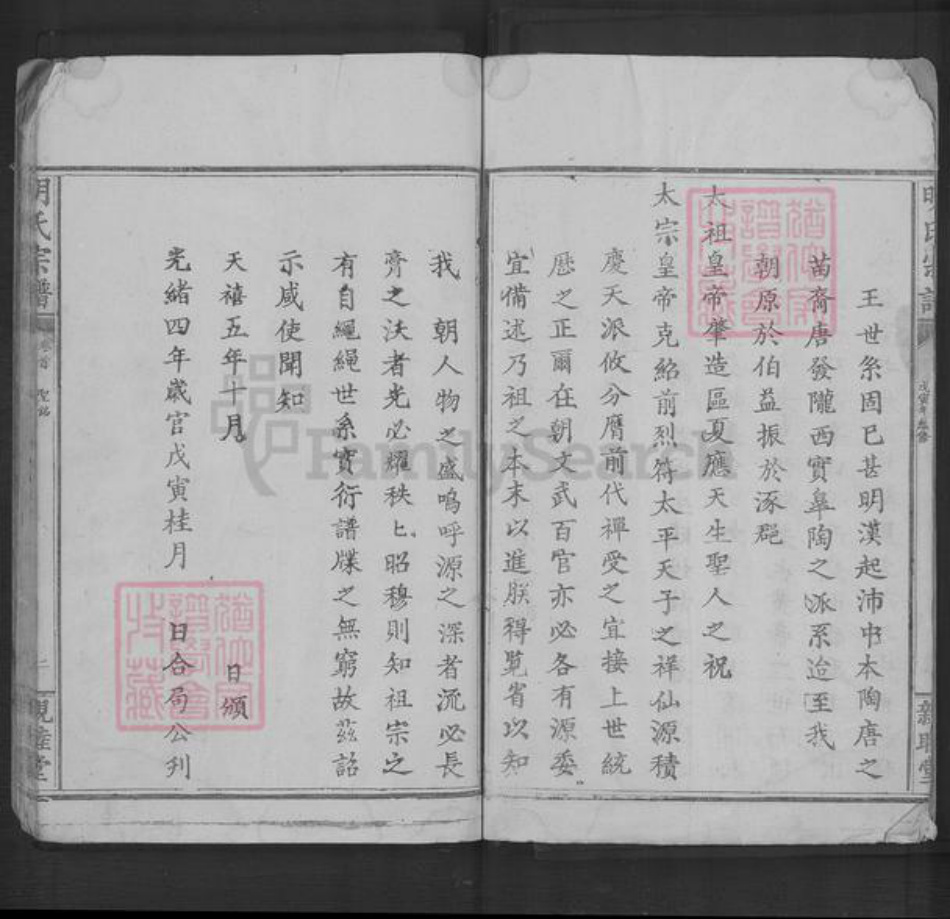 王世系固已甚明漢起沛中本陶唐之
苗裔唐發隴西實皋陶之派系迨至我
朝原於伯益振於涿郡
太祖皇帝肇造區夏應天生聖人之祝
太宗皇帝克紹前烈符太平天子之祥仙源積
慶天派攸分膺前代禪受之宜接上世統
歷之正爾在朝文武百官亦必各有源委
宜備述乃祖之本末以進朕得覽省以知
我 朝人物之盛嗚呼源之深者流必長
膏之沃者光必耀秩匕昭穆則知祖宗之
有自繩繩世系實衍譜牒之無窮故茲詔
示咸使聞知
天禧五年十月 日頒
光緒四年歲官戊寅桂月 日合局公刋
明氏宗譜
卷首 聖銘
二
親睦堂
FamilySearch